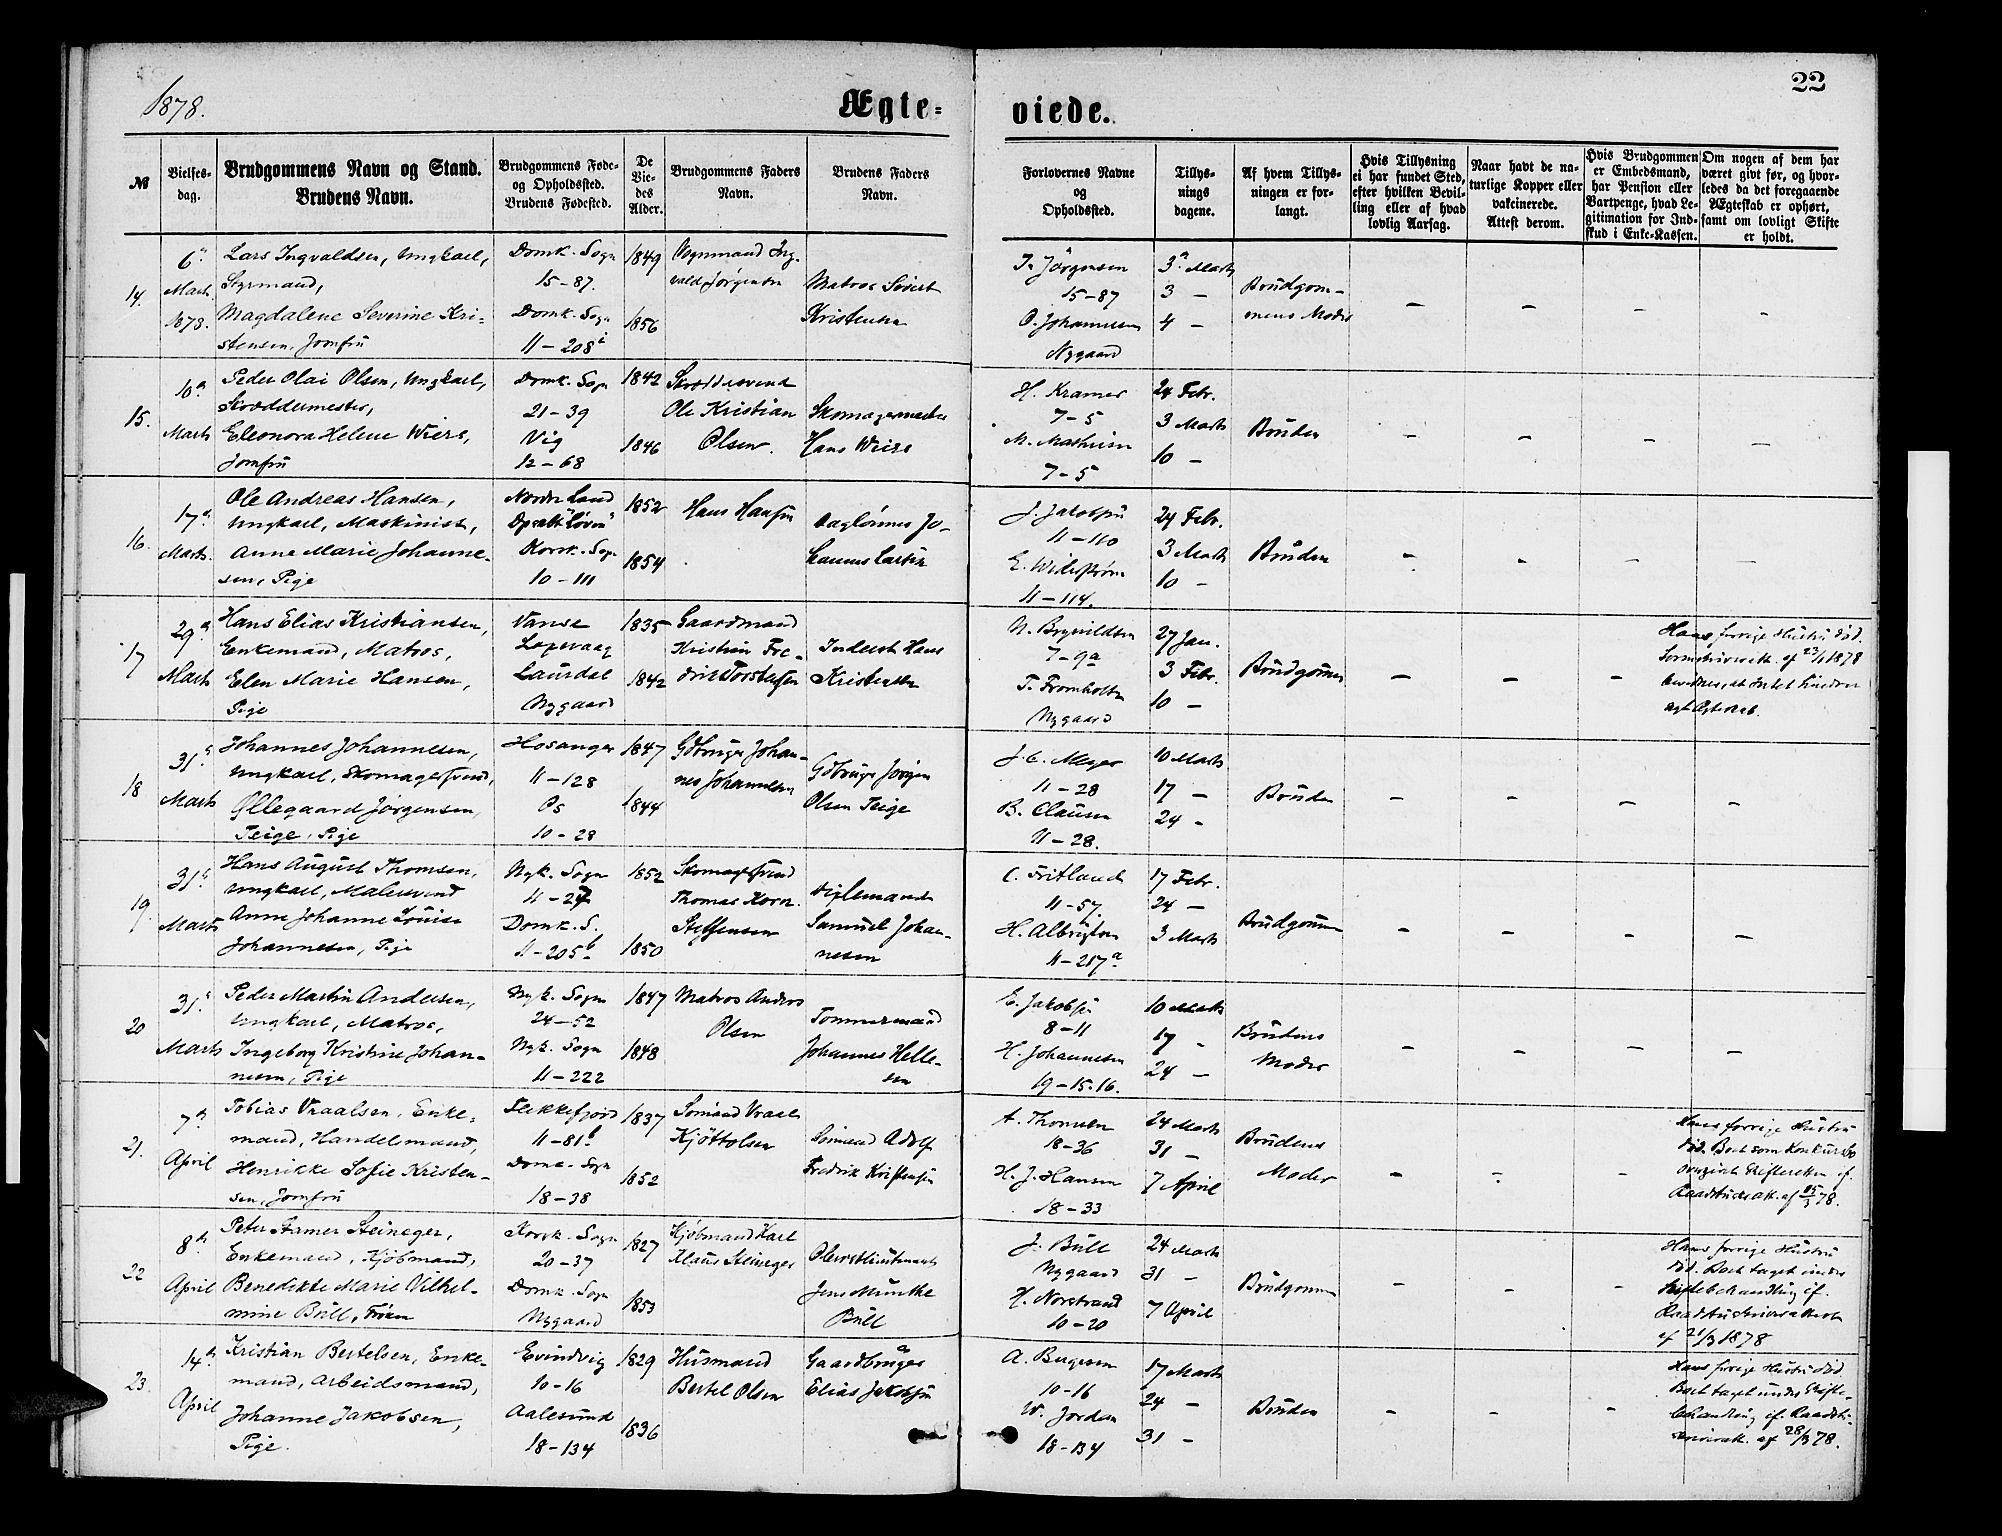 1878.
Ægte-
viede.
22
№
Vielses-
dag.
Brudgommens Navn og Stand.
Brudens Navn.
Brudgommens Føde-
og Opholdssted.
Brudens Fødested.
De
Vie-
des
Alder.
Brudgommens Faders
Navn.
Brudens Faders
Navn.
Forlovernes Navne
og
Opholdssted.
Tillys-
nings
dagene.
Af hvem Tillys-
ningen er for-
langt.
Hvis Tillysning
ei har fundet Sted,
efter hvilken Bevil-
ling eller af hvad
lovlig Aarsag.
Naar havt de na-
turlige Kopper eller
vakcinerede.
Attest derom.
Hvis Brudgommen
er Embedsmand,
har Pension eller
Vartpenge, hvad Le-
gitimation for Ind-
skud i Enke-Kassen.
Om nogen af dem har
været givt før, og hvor-
ledes da det foregaaende
Ægteskab er ophørt,
samt om lovligt Skifte
er holdt.
14.
6
Marts
1878.
Lars Ingvaldsen, Ungkarl,
Styrmand,
Magdalene Severine Kri-
stensen, Jomfru
Domk. Sogn
15-87.
Domk. Sogn
11-208
1849
1856
Ing-
vald Jørgensen
Matros Sivert
Kristensen
T. Jörgensen
15-87
O. Johannesen
Nygaard
3 Marts
3 -
4 -
Brudgom-
mens Moder
15.
10
Marts
Peder Olai Olsen, Ungkarl,
Skræddermester,
Eleonora Helene Wiers,
Jomfru
Domk. Sogn
21-39
Vig
12-68
1842
1846
Skræddersvend
Ole Kristian
Olsen.
Skomagermester
Hans Wiers
H. Kramer
7-5
M. Mathiesen
7-5
24 Febr.
3 Marts
10 -
Bruden
16.
17
Marts.
Ole Andreas Hansen,
Ungkarl, Maskinist,
Anne Marie Johanne-
sen, Pige
Nordre Land
Dpsk "Löven"
Korsk. Sogn
10-111
1852
1854
Hans Hansen
Daglönner Jo-
hannes Larsen
J. Jakobsen
11-110
E. Widerstrøm
11-114.
24 Febr.
3 Marts
10 -
Bruden
17
29
Marts
Hans Elias Kristiansen,
Enkemand, Matros,
Elen Marie Hansen,
Pige
Vanse
Laxevaag
Laurdal
Nygaard
1835
1842
Gaardmand
Kristian Fre-
drik Torstensen
Inderst Hans
Kristensen
N. Brynildsen
7-9a
T. Fromholtz
Nygaard
27 Jan.
3 Febr.
10 -
Brudgommen
Hans forrige Hustru død.
af 23/1 1878
18
31
Marts
Johannes Johannesen,
Ungkarl, Skomagersvend,
Øllegaard Jørgensen
Teige, Pige
Hosanger
11-128
Os
10-28
1847
1844
Gdbruger Johan-
nes Johannesen
Gdbruger Jørgen
Olsen Teige
J. C. Meyer
11-28
B. Clausen
11-28.
10 Marts
17 -
24 -
Bruden
19.
31
Marts
Hans August Thomsen,
Ungkarl, Malersvend
Anne Johanne Louise
Johannesen, Pige
Nyk. Sogn
11-27
Domk. S.
11-205b
1852
1850
Skomagersvend
Thomas Korn.
Steffensen
Samuel Johan-
nesen
C. Fritland
11-57.
H. Albrigtsen
11-217a
17 Febr.
24 -
3 Marts
Brudgommen
20
31
Marts
Peder Martin Andersen,
Ungkarl, Matros,
Ingeborg Kristine Johan-
nesen, Pige
Nyk. Sogn
24-52
Nyk. Sogn
11-222
1847
1848
Matros Anders
Olsen
Tømmermand
Johannes Helle-
sen
E. Jakobsen
8-11
H. Johannesen
19-15.16.
10 Marts
17 -
24 -
Brudens
Moder
21.
7
April
Tobias Vraalsen, Enke-
mand, Handelsmand,
Henrikke Sofie Kristen-
sen, Jomfru
Flekkefjord
11-81b
Domk. Sogn
18-38
1837
1852
Sömand Vraal
Kjöttolsen
Sömand Adolf
Fredrik Kristensen
A. Thomsen
18-36
H. J. Hansen
18-33
24 Marts
31 -
7 April
Brudens
Moder
Hans forrige Hustru
død. Boet som Konkursbo
Skifteretten if.
Raadstuskr.att. af 15/3 78.
22
8
April
Peter Stamer Steineger,
Enkemand, Kjøbmand,
Benedikte Marie Vilhel-
mine Büll, Frøken
Korsk. Sogn
20-37
Domk. Sogn
Nygaard
1827
1853
Kjøbmand Karl
Klaus Steineger
Oberstlieutenant
Jens Munthe
Büll
J. Büll
Nygaard
H. Norstrand
10-20
24 Marts
31 -
7 April
Brudgommen
Hans forrige Hustru
død. Boet taget under
Skiftebehandling if.
Raadstuskriverattest
af 21/3 1878
23.
14
April
Kristian Bertelsen, Enke-
mand, Arbeidsmand,
Johanne Jakobsen,
Pige.
Evindvig
10-16
Aalesund
18-134
1829
1836
Husmand
Bertel Olsen
Gaardbruger
Elias Jakobsen
A. Bergesen
10-16
W. Jordan
18-134
17 Marts
24 -
31 -
Bruden
Hans forrige Hustru død.
Boet taget under Skifte-
behandling if. Raadstu-
skriveratt. af 28/3 78.